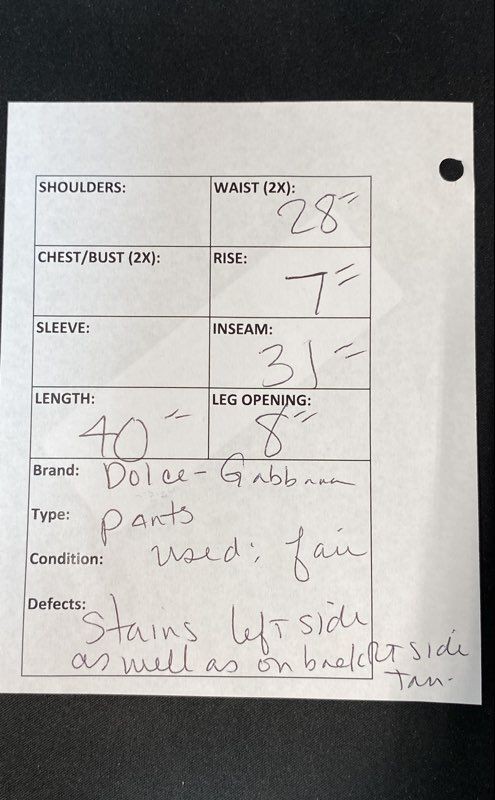 SHOULDERS:
WAIST (2X): 28"
CHEST/BUST (2X):
RISE: 7"
SLEEVE:
INSEAM: 31"
LENGTH: 40"
LEG OPENING: 8"
Brand: Dolce-Gabbana
Type: Pants
Condition: used: fair
Defects:
Stains left side
as well as on back RT side
tan.